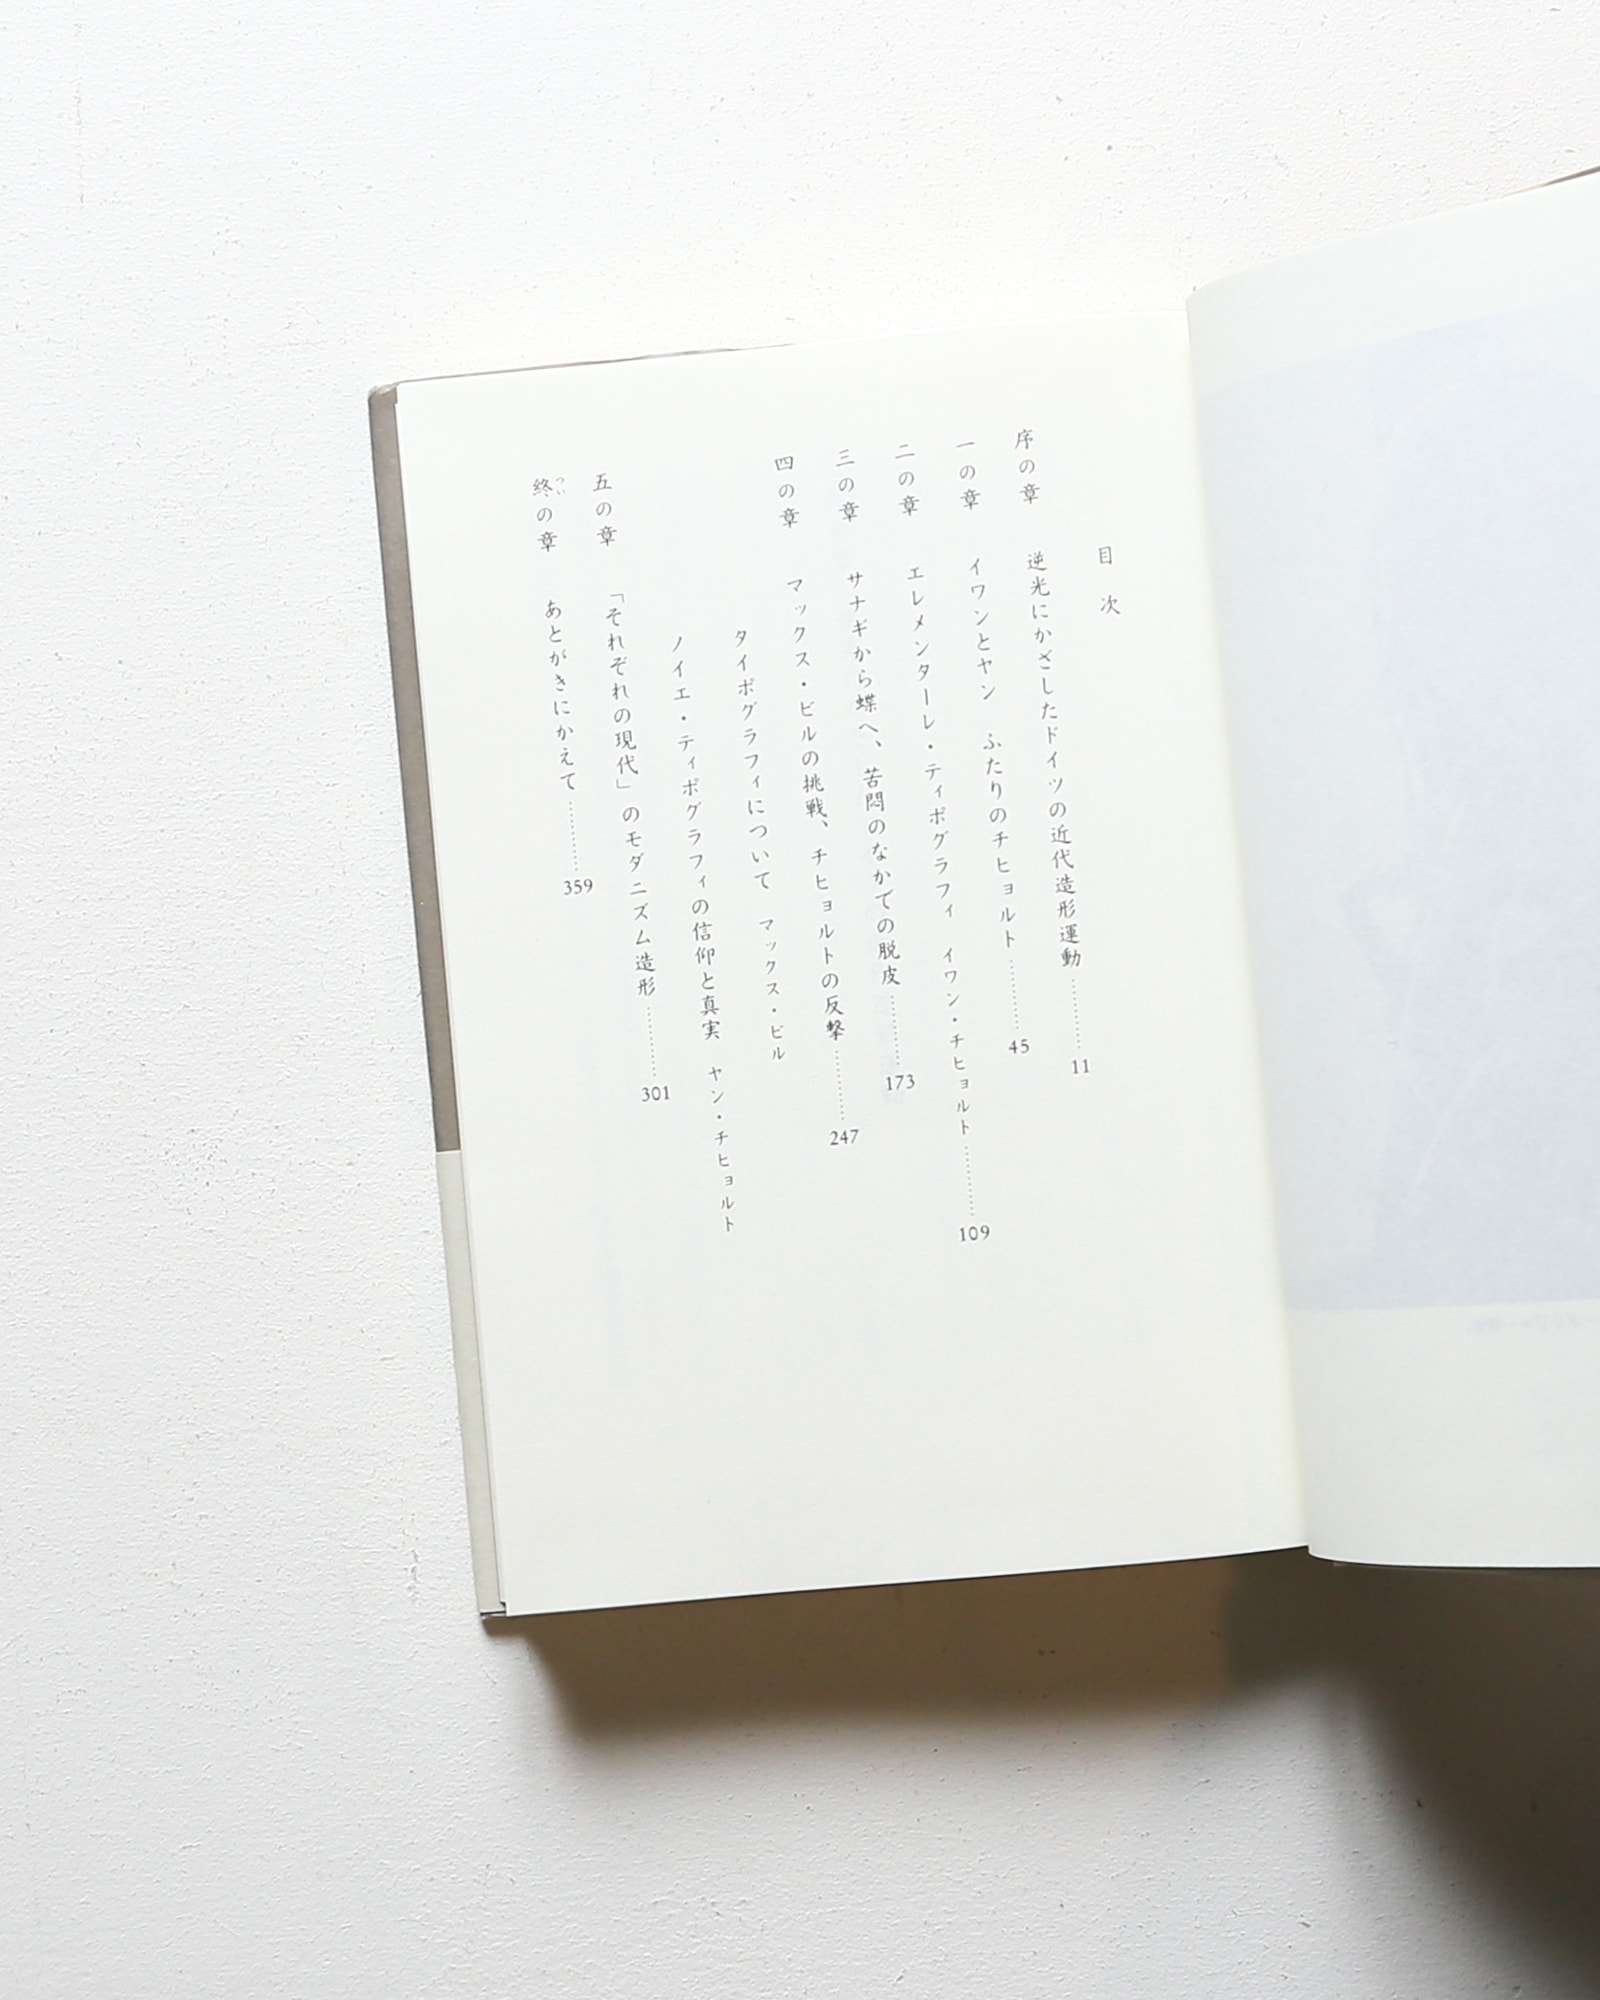 目次
序の章 逆光にかざしたドイツの近代造形運動………11
一の章 イワンとヤン ふたりのチヒョルト………45
二の章 エレメンターレ・ティポグラフィ イワン・チヒョルト………109
三の章 サナギから蝶へ、苦悶のなかでの脱皮………173
四の章 マックス・ビルの挑戦、チヒョルトの反撃………247
タイポグラフィについて マックス・ビル
ノイエ・ティポグラフィの信仰と真実 ヤン・チヒョルト
五の章 「それぞれの現代」のモダニズム造形………301
終の章 あとがきにかえて………359
つい